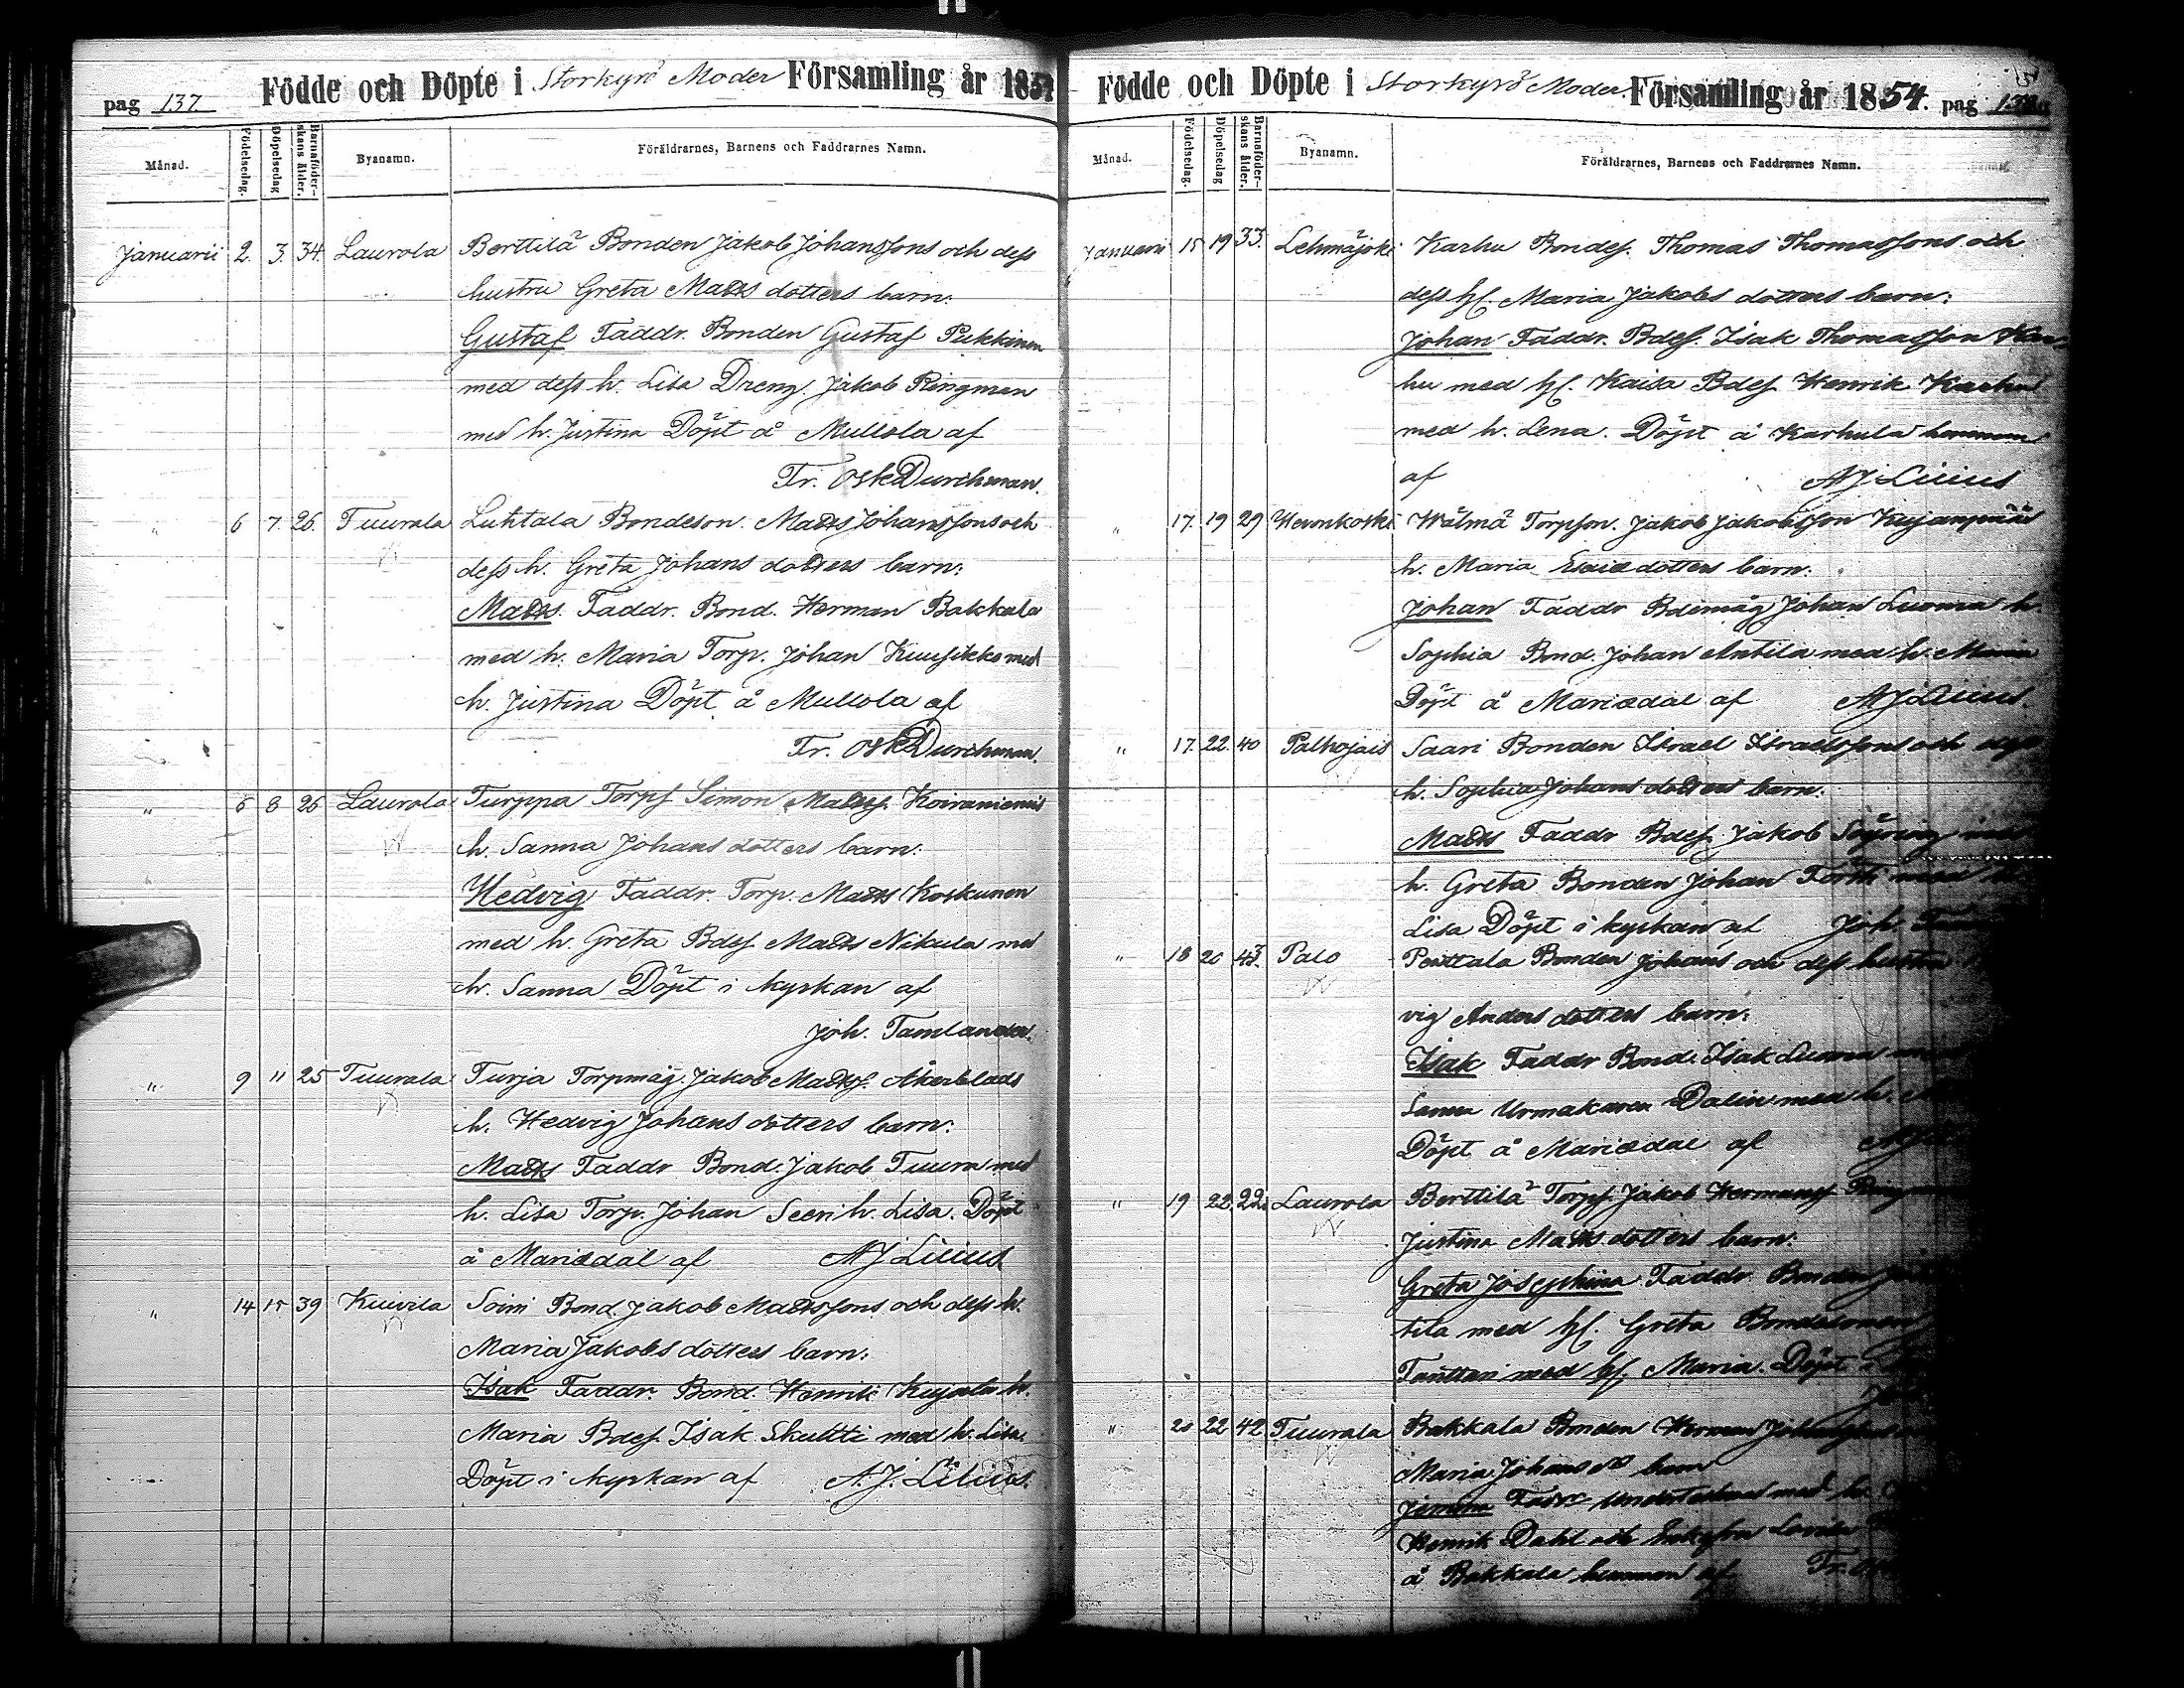 pag 137 Födde och Döpte i Storkyrö Moder Församling år 1854
Månad. Födelsedag. Döpelsedag Barnaföderskans ålder. Byanamn. Föräldrarnes, Barnens och Faddrarnes Namn.
Januarii 2. 3. 34. Laurola Berttilä Bonden Jakob Johanssons och dess
hustru Greta Matts dotters barn:
Gustaf Faddr. Bonden Gustaf Pukkinen
med dess h. Lisa Dreng. Jakob Ringman
med h. Justina Döpt å Mullola af
Tr. Osk Durchman.
" 6 7. 26. Tuurala Luhtala Bondeson. Matts Johanssons och
dess h. Greta Johans dotters barn:
Matts. Faddr. Bond. Herman Bakkala
med h. Maria Torp. Johan Kuusikko med
h. Justina Döpt å Mullola af
Tr. Osk Durchman.
" 6 8 26 Laurola Turppa Torps Simon Mattss. Koiraniemis
h. Sanna Johans dotters barn:
Hedvig Faddr. Torp. Matts Koskunen
med h. Greta Bdes. Matts Nikula med
h. Sanna Döpt i kyrkan af
Joh. Tamlander.
" 9 11 25 Tuurala Turja Torpmåg. Jakob Mattss. Åkerblads
h. Hedvig Johans dotters barn:
Matts Faddr Bond. Jakob Tuura med
h. Lisa Torp. Johan Seeri h. Lisa. Döpt
å Mariedal af A J Lilius
" 14 15 39 Kuivila Soini Bond. Jakob Mattssons och dess h.
Maria Jakobs dotters barn:
Isak Faddr. Bond. Henrik Kujala h.
Maria Bdes. Isak Skultti med h. Lisa
Döpt i kyrkan af A. J. Lilius.
Födde och Döpte i Storkyrö Moder Församling år 1854. pag
Månad. Födelsedag. Döpelsedag Barnaföderskans ålder. Byanamn. Föräldrarnes, Barnens och Faddrarnes Namn.
Januarii 15 19 33. Lehmäjoki Karhu Bondes. Thomas Thomassons och
dess h. Maria Jakobs dotters barn:
Johan Faddr. Bdes. Isak Thomasson Kar-
hu med h. Kaisa Bdes. Henrik Karhu
med h. Lena. Döpt å Karhula hemman
af A J Lilius
" 17. 19 29 Hevonkoski Wälmä Torpson. Jakob Jakobsson Kujanpääs
h. Maria Esaiæ dotters barn:
Johan Faddr Bdemåg Johan Luoma h.
Sophia Bond. Johan Antila med h. Maria
Döpt å Mariedal af A J Lilius.
" 17. 22. 40 Palhojais Saari Bonden Israel Israelssons och dess
h. Sophia Johans dotters barn:
Matts Faddr Bdes. Jakob
h. Greta Bonden Johan med h.
Lisa Döpt i kyrkan af Joh.
" 18 20 43. Palo Penttala Bonden Johans och dess hustru
vig Anders dotters barn:
Isak Faddr Bond. Isak Luoma
Sanna Urmakaren Dalin med h.
Döpt å Mariedal af
" 19 22. 22. Laurola Berttilä Torps. Jakob Hermanss.
Justina Matts dotters barn:
Greta Josephina Faddr. Bonden
tila med h. Greta Bondesonen
Tanttari med h. Maria. Döpt
" 20 22 42 Tuurala Bakkala Bonden Herman
Maria Johans dr barn
Faddr med h.
Henrik Dahl och
å Bakkala hemman af Tr.